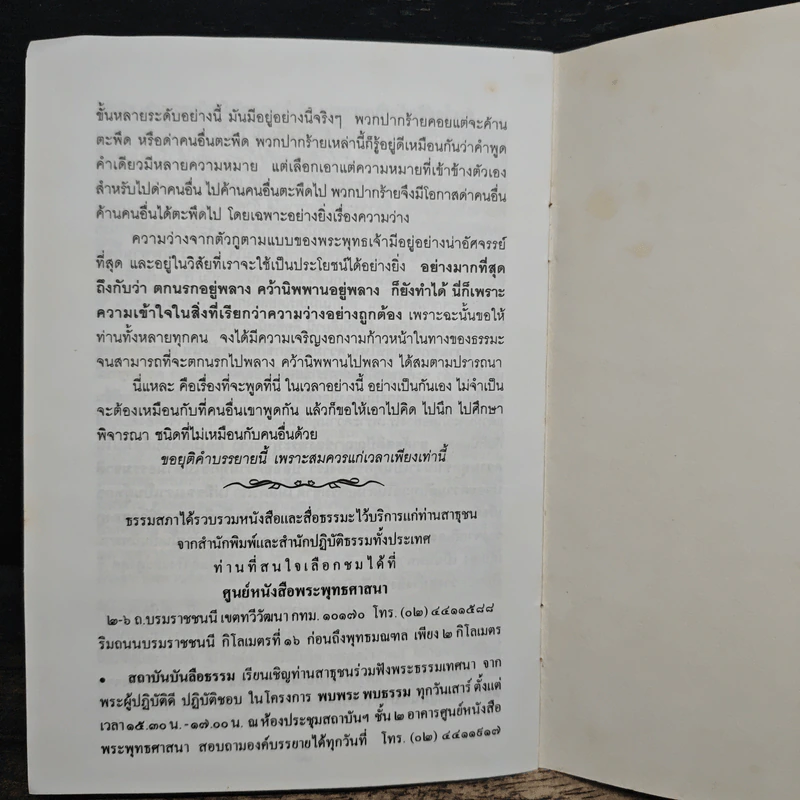 ชั้นหลายระดับอย่างนี้ มันมีอยู่อย่างนี้จริงๆ พวกปากร้ายคอยแต่จะค้าน
ตะพึด หรือด่าคนอื่นตะพึด พวกปากร้ายเหล่านี้ก็รู้อยู่ดีเหมือนกันว่าคำพูด
คำเดียวมีหลายความหมาย แต่เลือกเอาแต่ความหมายที่เข้าข้างตัวเอง
สำหรับไปด่าคนอื่น ไปค้านคนอื่นตะพึดไป พวกปากร้ายจึงมีโอกาสด่าคนอื่น
ค้านคนอื่นได้ตะพึดไป โดยเฉพาะอย่างยิ่งเรื่องความว่าง
ความว่างจากตัวกูตามแบบของพระพุทธเจ้ามีอยู่อย่างน่าอัศจรรย์
ที่สุด และอยู่ในวิสัยที่เราจะใช้เป็นประโยชน์ได้อย่างยิ่ง อย่างมากที่สุด
ถึงกับว่า ตกนรกอยู่พลาง คว้านิพพานอยู่พลาง ก็ยังทำได้ นี่ก็เพราะ
ความเข้าใจในสิ่งที่เรียกว่าความว่างอย่างถูกต้อง เพราะฉะนั้นขอให้
ท่านทั้งหลายทุกคน จงได้มีความเจริญงอกงามก้าวหน้าในทางของธรรมะ
จนสามารถที่จะตกนรกไปพลาง คว้านิพพานไปพลาง ได้สมตามปรารถนา
นี่แหละ คือเรื่องที่จะพูดที่นี่ ในเวลาอย่างนี้ อย่างเป็นกันเอง ไม่จำเป็น
จะต้องเหมือนกับที่คนอื่นเขาพูดกัน แล้วก็ขอให้เอาไปคิด ไปนึก ไปศึกษา
พิจารณา ชนิดที่ไม่เหมือนกับคนอื่นด้วย
ขอยุติคำบรรยายนี้ เพราะสมควรแก่เวลาเพียงเท่านี้
ธรรมสภาได้รวบรวมหนังสือและสื่อธรรมะไว้บริการแก่ท่านสาธุชน
จากสำนักพิมพ์และสำนักปฏิบัติธรรมทั้งประเทศ
ท่านที่สนใจเลือกชมได้ที่
ศูนย์หนังสือพระพุทธศาสนา
๒-๖ ถ.บรมราชชนนี เขตทวีวัฒนา กทม. ๑๐๑๗๐ โทร. (๐๒) ๔๔๑๑๕๘๘
ริมถนนบรมราชชนนี กิโลเมตรที่ ๑๖ ก่อนถึงพุทธมณฑล เพียง ๒ กิโลเมตร
• สถาบันบันลือธรรม เรียนเชิญท่านสาธุชนร่วมฟังพระธรรมเทศนา จาก
พระผู้ปฏิบัติดี ปฏิบัติชอบ ในโครงการ พบพระ พบธรรม ทุกวันเสาร์ ตั้งแต่
เวลา ๑๕.๓๐ น. -๑๗.๐๐ น. ณ ห้องประชุมสถาบันฯ ชั้น ๒ อาคารศูนย์หนังสือ
พระพุทธศาสนา สอบถามองค์บรรยายได้ทุกวันที่ โทร. (๐๒) ๔๔๑๑๙๑๗